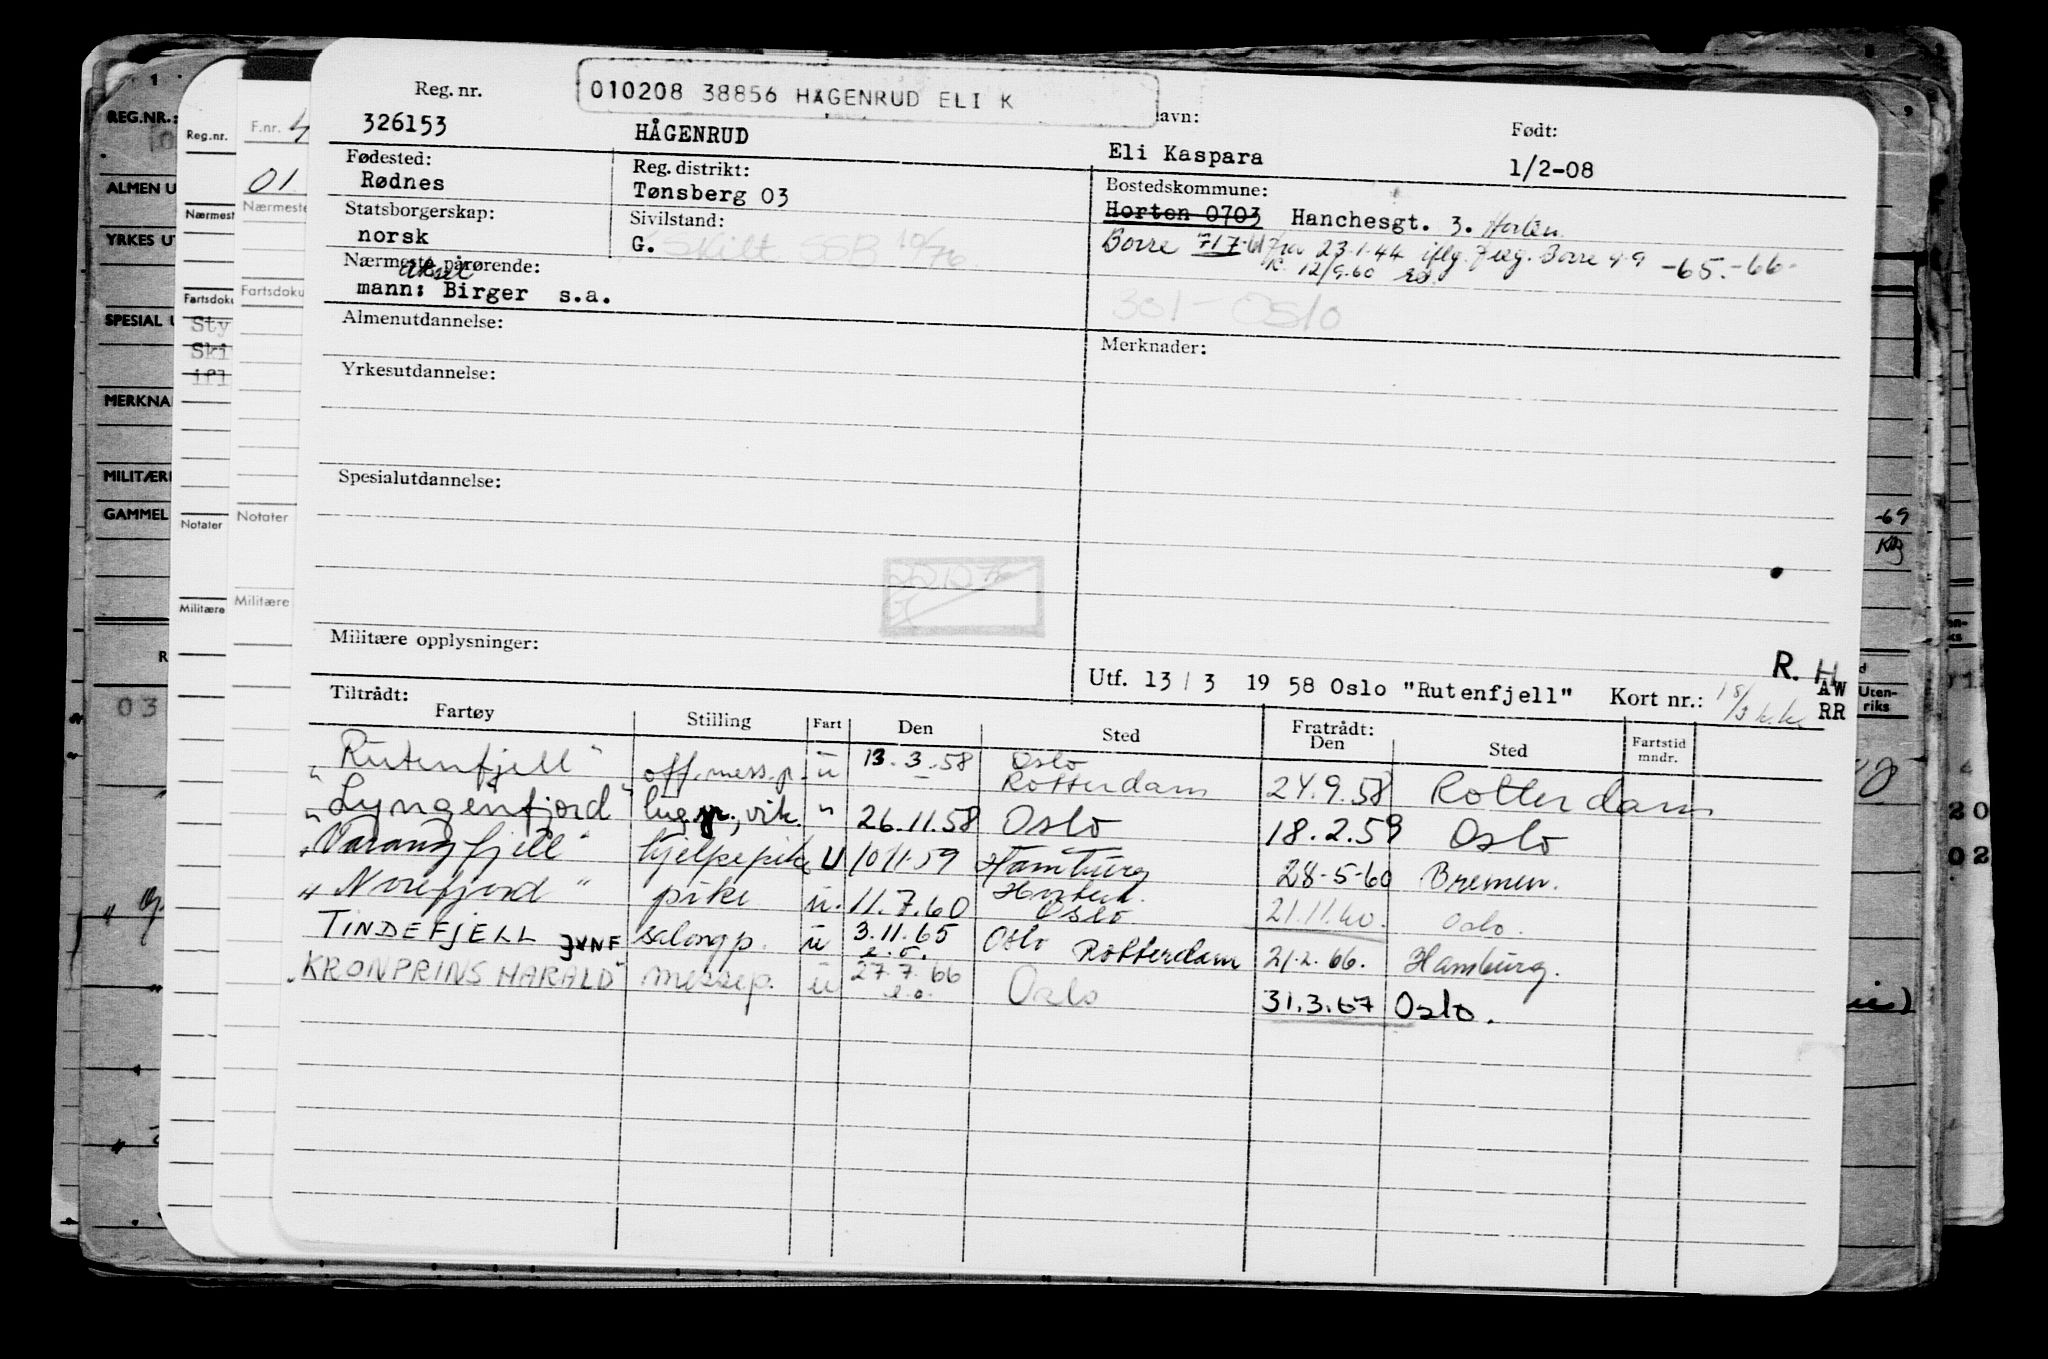 010208 38856 HAGENRUD ELI K
Reg. nr. avn: Født:
326153 HÅGENRUD Eli Kaspara 1/2-08
Fødested: Reg. distrikt: Bostedskommune:
Rødnes Tønsberg 03 Horten 0703 Hanchesgt. 3. Horten
Statsborgerskap: Sivilstand: Borre 717-61 fra 23.1.44 iflg. Borre 4.9 -65.-66-
norsk G. Skilt SSB 10/76 K. 12/9.60
Nærmeste pårørende:
Aksel
mann: Birger s.a.
301 - Oslo
Almenutdannelse: Merknader:
Yrkesutdannelse:
Spesialutdannelse:
Militære opplysninger:
R. H
Utf. 13 / 3 19 58 Oslo "Rutenfjell" Kort nr.: 18/3 k.k. AW
RR
Tiltrådt: Fratrådt:
Fartøy Stilling Fart Den Sted Den Sted Fartstid mndr.
"Rutenfjell" off.mess.p. u 13.3.58 Oslo Rotterdam 24.9.58 Rotterdam
"Lyngenfjord" lug.p., vik. " 26.11.58 Oslo 18.2.59 Oslo
"Varangfjell" hjelpepike U 10/11-59 Hamburg 28-5-60 Bremen.
"Norefjord" pike u. 11.7.60 Oslo 21.11.60. Oslo.
TINDEFJELL JVNF salongp. u 3.11.65 e.o. Oslo Rotterdam 21.2.66. Hamburg.
"KRONPRINS HARALD" messep. u 27.7.66 e.o. Oslo 31.3.67 Oslo.
REG.NR.:
ALMEN U
YRKES UT
SPESIAL U
MERKNA
MILITÆR
GAMMEL
03
Reg.nr.
Nærmest
Fartsdoku
Sty
Ski
ifl
Notater
Militære
F.nr. 4
01
Nærmeste
Fartsdoku
Notater
Militære
-69
Uten-
riks
20
02